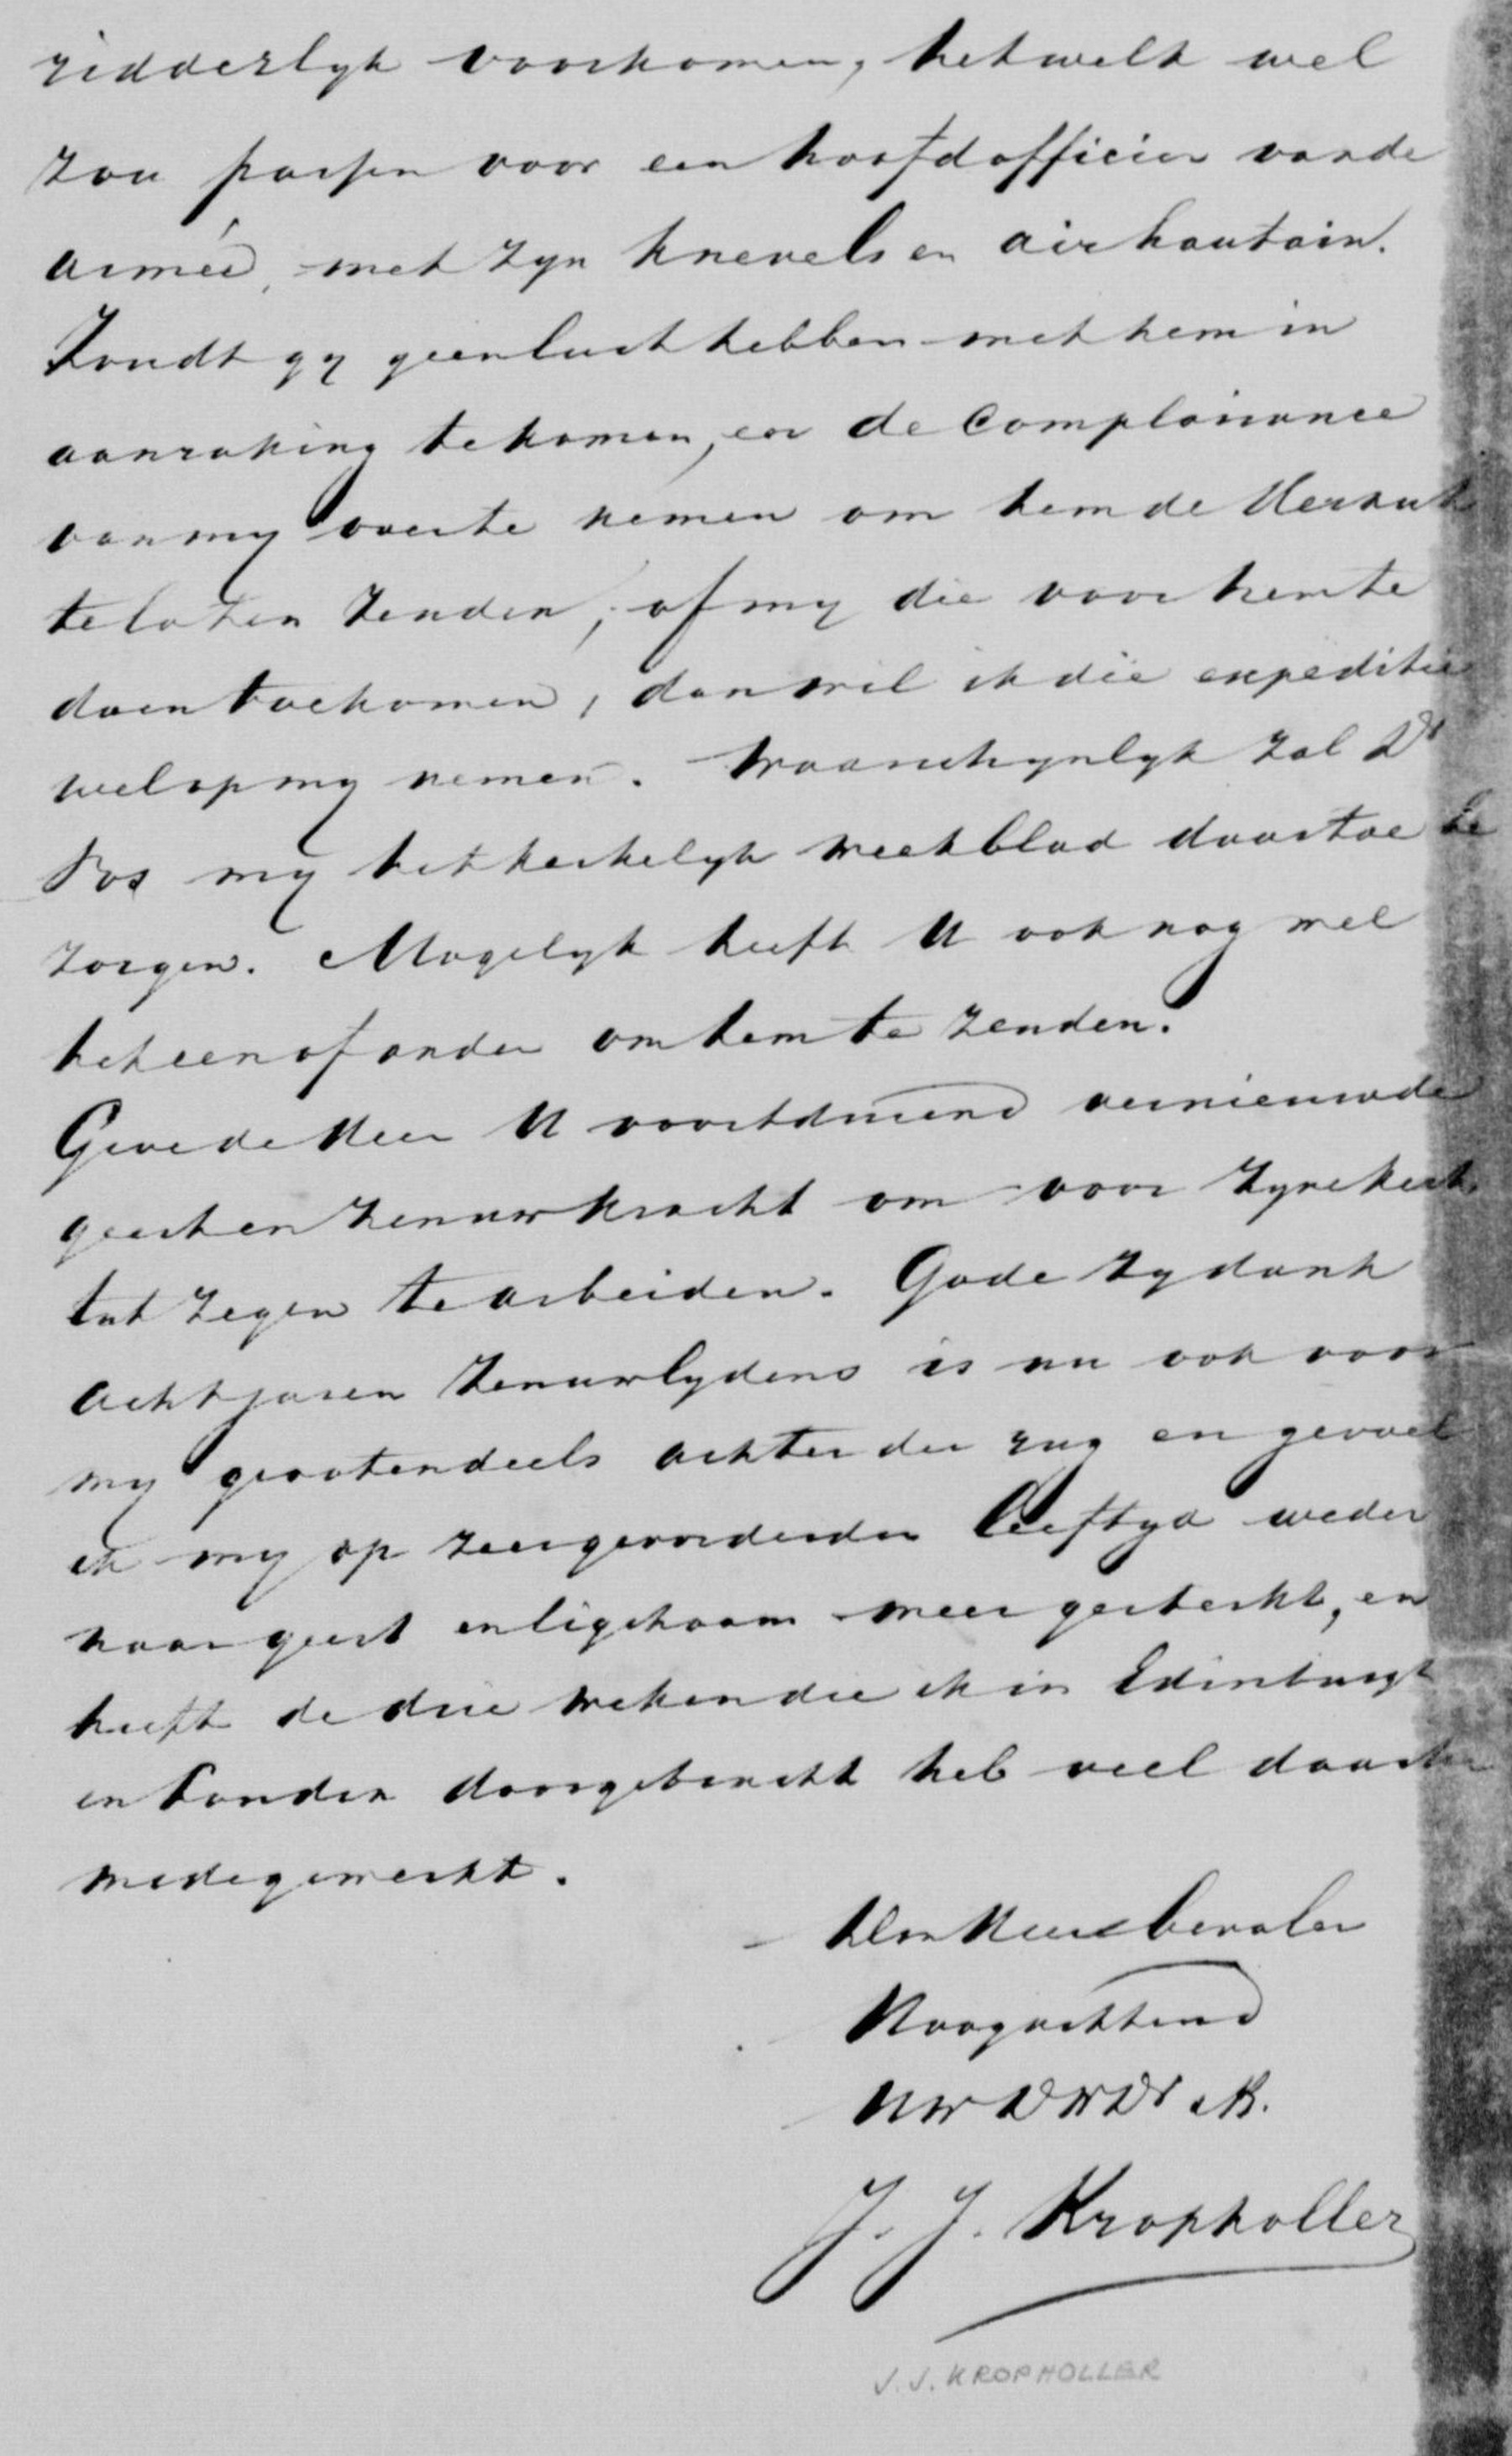 ridderlyk voorkomen, hetwelk wel
zou passen voor een hoofdofficier van de
armée, met zyn knevels en air hautain.
Zoudt gy geen lust hebben met hem in
aanraking te komen, en de complaisance
van my over te nemen om hem de Heraut
te laten zenden, of my die voor hem te
doen toekomen, dan wil ik die expeditie
wel op my nemen. Waarschynlyk zal Ds
Vos my het kerkelyk weekblad daartoe be
zorgen. Mogelyk heeft U ook nog wel
het een of ander om hem te zenden.
Geve de Heer U voortdurend vernieuwde
geest en zenuwkracht om voor Zyne kerk
tot zegen te arbeiden. Gode zy dank
acht jaren zenuwlydens is nu ook voor
my grootendeels achter den rug en gevoel
ik my op zeer gevorderden leeftyd weder
naar geest en ligchaam meer gesterkt, en
heeft de drie weken die ik in Edinburgh
en Londen doorgebracht heb veel daartoe
medegewerkt.
Den Heere bevolen
Hoogachtend
UwDWDr
J. J. Kropholler
J. J. KROPHOLLER